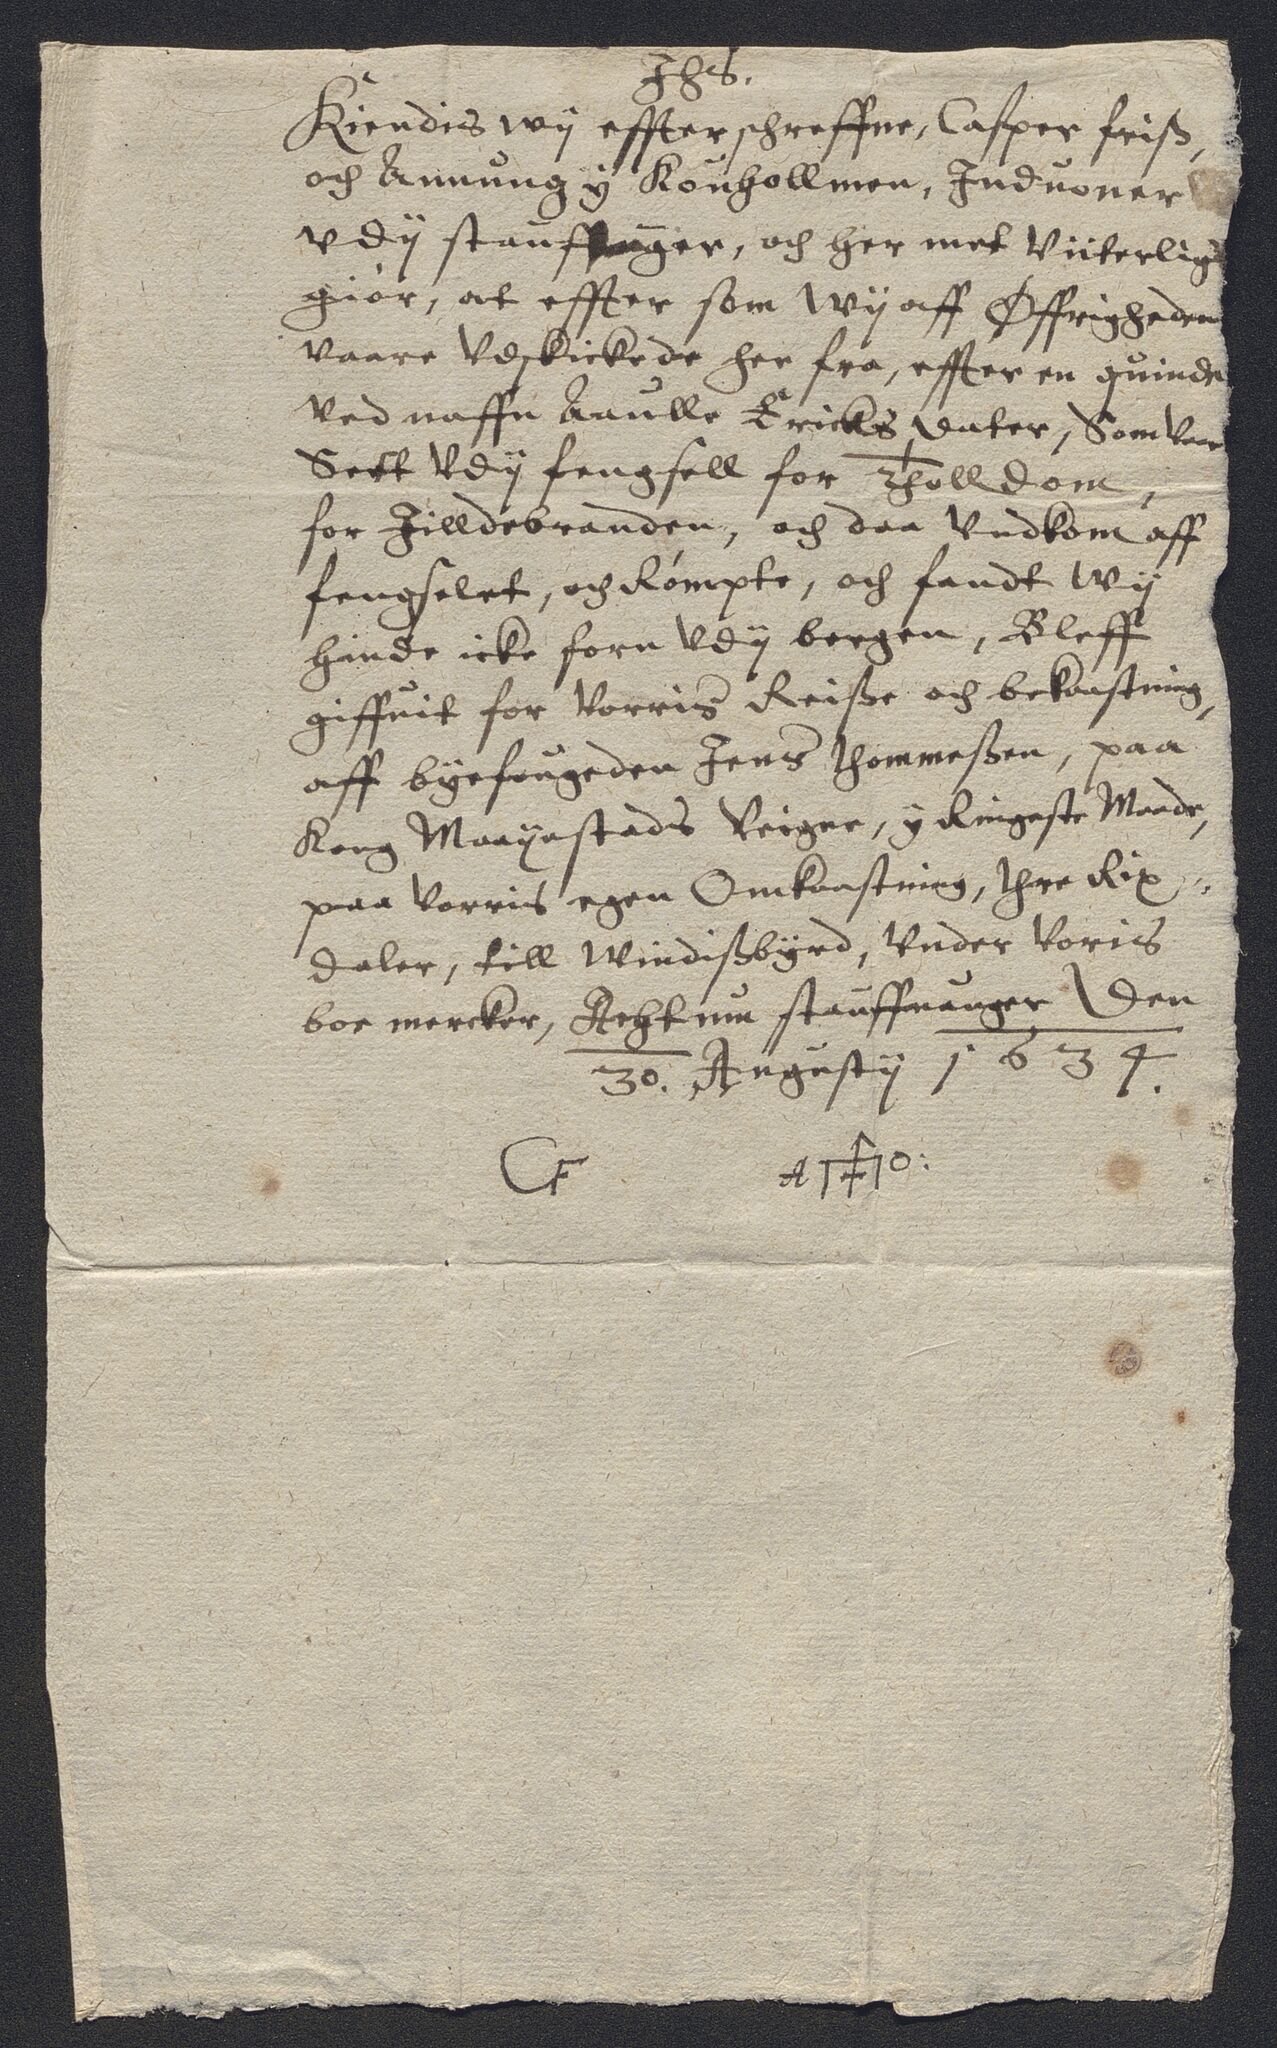 Jhs.
Kiendis wij effterschreffne, Casper friss,
och Amung ÿ Kouhollmen, Induoner
vdij stauffuger, och her met Viiterligt
giór, at effter som wij aff Øffrigheden
vaare Vdskickede her fra, effter en quinde
Ved naffn Aaulle Ericks dater, Som Vaar
Sett Vdij fengsell for tholldom,
for Jilldebranden, och daa Vndkom aff
fengselet, och Römpte, och fandt wij
hinde icke forn Vdij bergen, Bleff
giffuit for Vorris Reisse och bekaastning,
aff byefougeden Jens Thommessen, paa
Kong Maayestads Veigne, ÿ Ringeste Maade,
paa Vorris egen Omkaastning, Thre Rix
daler, till Windissbÿrd, Vnder Voris
boe mercker, Acht um stauffuanger Den
30. Augustij 1634.
CF A H O: